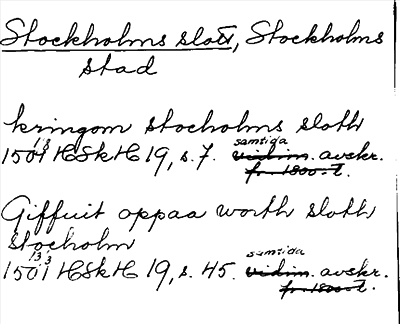 Stockholms slott, Stockholms
stad
kringom stocholms sloth
1501 13/8 HSH 19, s. 7. samtida vidim. avskr.
fr. 1800-t.
Giffuit oppaa worth sloth
stocholm
1501 13/3 HSH 19, s. 45. samtida vidim. avskr.
fr. 1800-t.